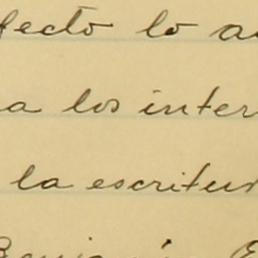 fecto lo a
a los inter
la escritur